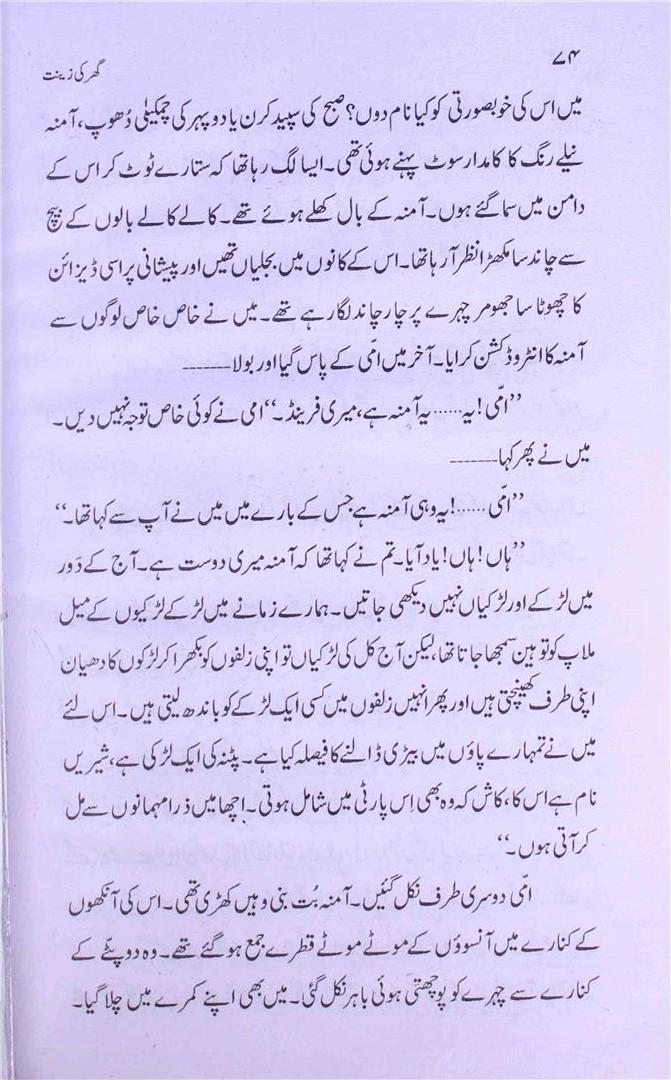 ۷۴
گھر کی زینت
میں اس کی خوبصورتی کو کیا نام دوں؟ صبح کی سپید کرن یا دوپہر کی چمکیلی دُھوپ، آمنہ
نیلے رنگ کا کامدار سوٹ پہنے ہوئی تھی۔ ایسا لگ رہا تھا کہ ستارے ٹوٹ کر اس کے
دامن میں سما گئے ہوں۔ آمنہ کے بال کھلے ہوئے تھے۔ کالے کالے بالوں کے بیچ
سے چاند سا مکھڑا نظر آ رہا تھا۔ اس کے کانوں میں بجلیاں تھیں اور پیشانی پر اسی ڈیزائن
کا چھوٹا سا جھومر چہرے پر چار چاند لگا رہے تھے۔ میں نے خاص خاص لوگوں سے
آمنہ کا انٹروڈکشن کرایا۔ آخر میں امّی کے پاس گیا اور بولا-------
”امّی! یہ...... یہ آمنہ ہے، میری فرینڈ۔“ امی نے کوئی خاص توجہ نہیں دیں۔
میں نے پھر کہا-------
”امّی......! یہ وہی آمنہ ہے جس کے بارے میں میں نے آپ سے کہا تھا۔“
”ہاں! ہاں! یاد آیا۔ تم نے کہا تھا کہ آمنہ میری دوست ہے۔ آج کے دَور
میں لڑکے اور لڑکیاں نہیں دیکھی جاتیں۔ ہمارے زمانے میں لڑکے لڑکیوں کے میل
ملاپ کو توہین سمجھا جاتا تھا، لیکن آج کل کی لڑکیاں تو اپنی زلفوں کو بکھرا کر لڑکوں کا دھیان
اپنی طرف کھینچتی ہیں اور پھر انہیں زلفوں میں کسی ایک لڑکے کو باندھ لیتی ہیں۔ اس لئے
میں نے تمہارے پاؤں میں بیڑی ڈالنے کا فیصلہ کیا ہے۔ پٹنہ کی ایک لڑکی ہے، شیریں
نام ہے اس کا، کاش کہ وہ بھی اِس پارٹی میں شامل ہوتی۔ اچھا میں ذرا مہمانوں سے مل
کر آتی ہوں۔“
امّی دوسری طرف نکل گئیں۔ آمنہ بُت بنی وہیں کھڑی تھی۔ اس کی آنکھوں
کے کنارے میں آنسوؤں کے موٹے موٹے قطرے جمع ہو گئے تھے۔ وہ دوپٹے کے
کنارے سے چہرے کو پوچھتی ہوئی باہر نکل گئی۔ میں بھی اپنے کمرے میں چلا گیا۔